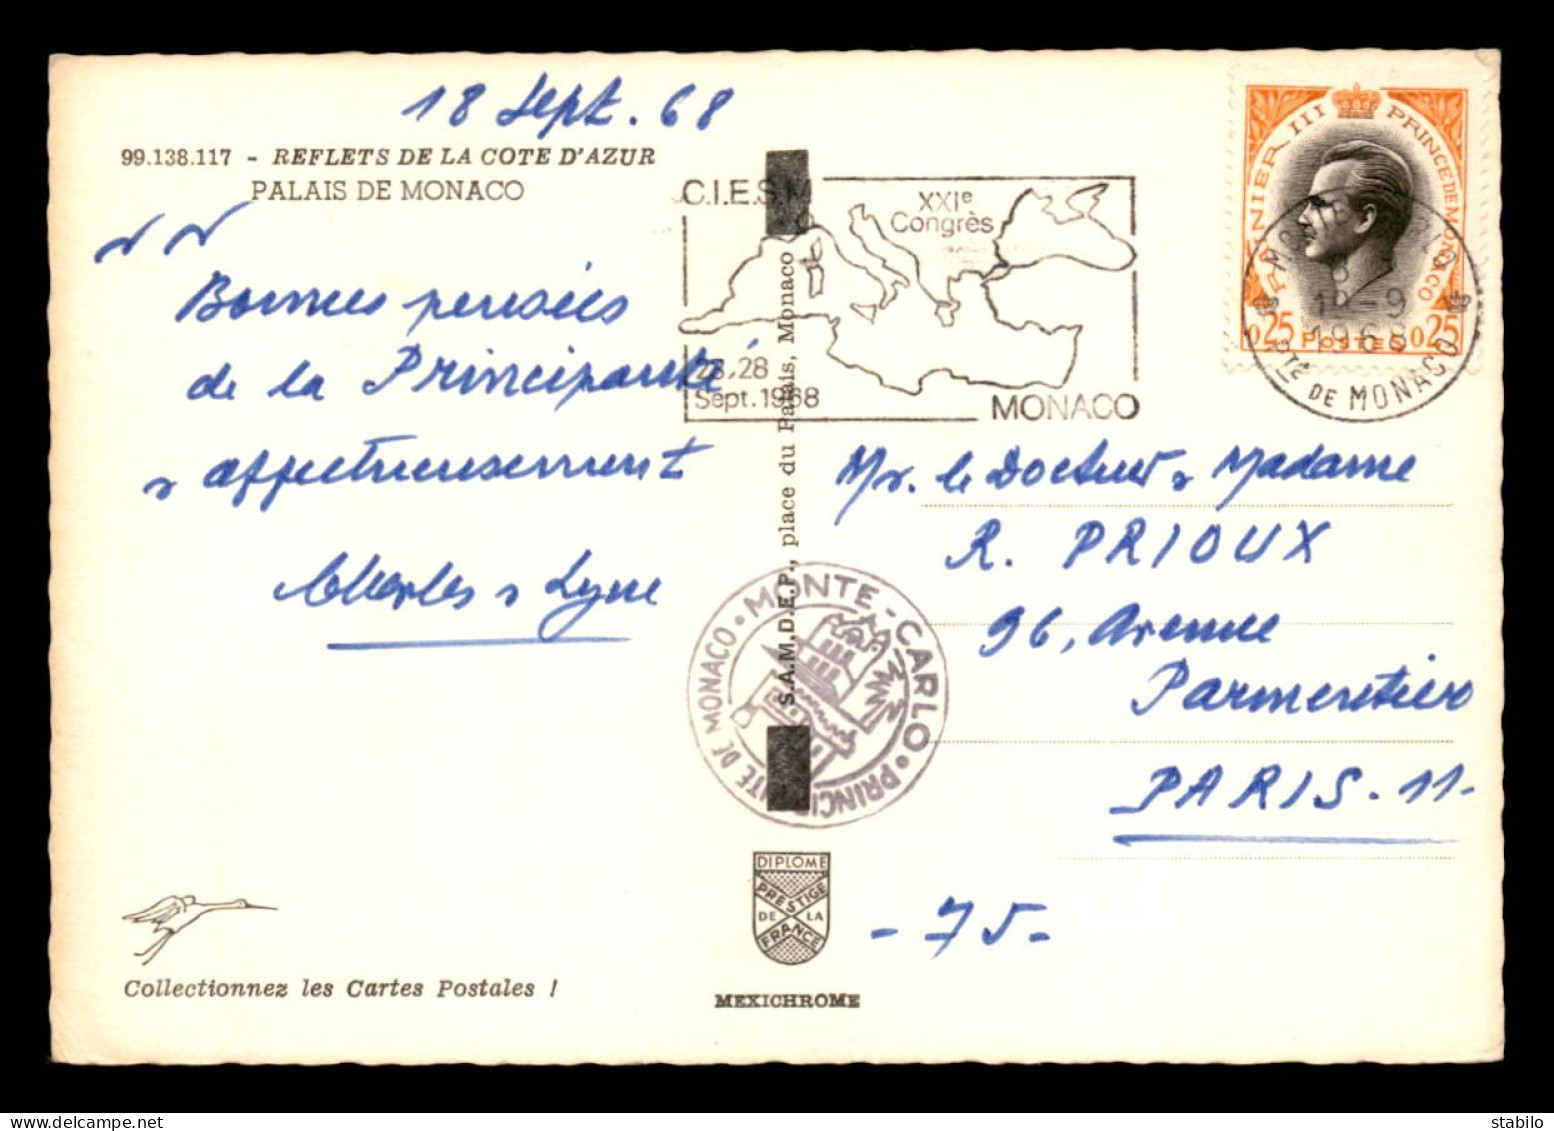 18 Sept. 68
99.138.117 - REFLETS DE LA COTE D'AZUR
PALAIS DE MONACO
Bonnes pensées
de la Principauté
& affectueusement
Charles & Lyne
C.I.E.S.M
XXIe
Congrès
23,28
Sept. 1968
MONACO
RAINIER III PRINCE DE MONACO
0,25 POSTES 0,25
MONTE-CARLO
18-9
1968
PTE DE MONACO
Mr. le Docteur & Madame
R. PRIOUX
96, Avenue
Parmentier
PARIS. 11.
- 75 -
S.A.M.D.E.P., place du Palais, Monaco
MONTE-CARLO • PRINCIPAUTE DE MONACO •
DIPLOME
PRESTIGE
DE LA
FRANCE
MEXICHROME
Collectionnez les Cartes Postales !
www.delcampe.net
stablo